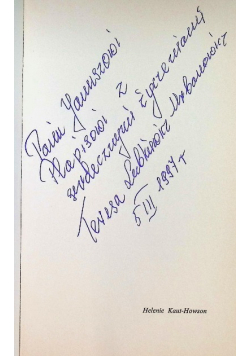 Panu Januszowi
Rapisowi z
serdecznymi życzeniami
Teresa Lubkiewicz Urbanowicz
5 III 1997 r
Helenie Kaut-Howson